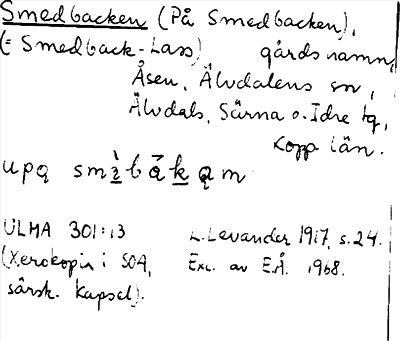 Smedbacken (På Smedbacken),
(= Smedback-Lass) gårdsnamn,
Åsen, Älvdalens sn,
Älvdals, Särna o. Idre tg,
Kopp län.
upq smìbåkqm
ULMA 301:13 L. Levander 1917, s. 24.
(Xerokopia i SOA, Exc. av E.Å. 1968.
särsk. kapsel).